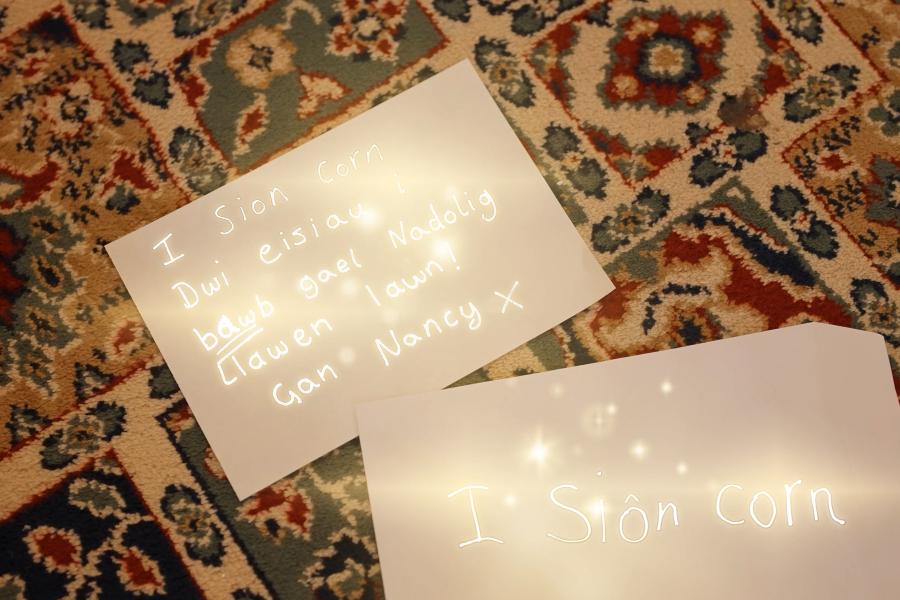 I Sion Corn
Dwi eisiau i
bawb gael Nadolig
Llawen lawn!
Gan Nancy X
I Siôn Corn